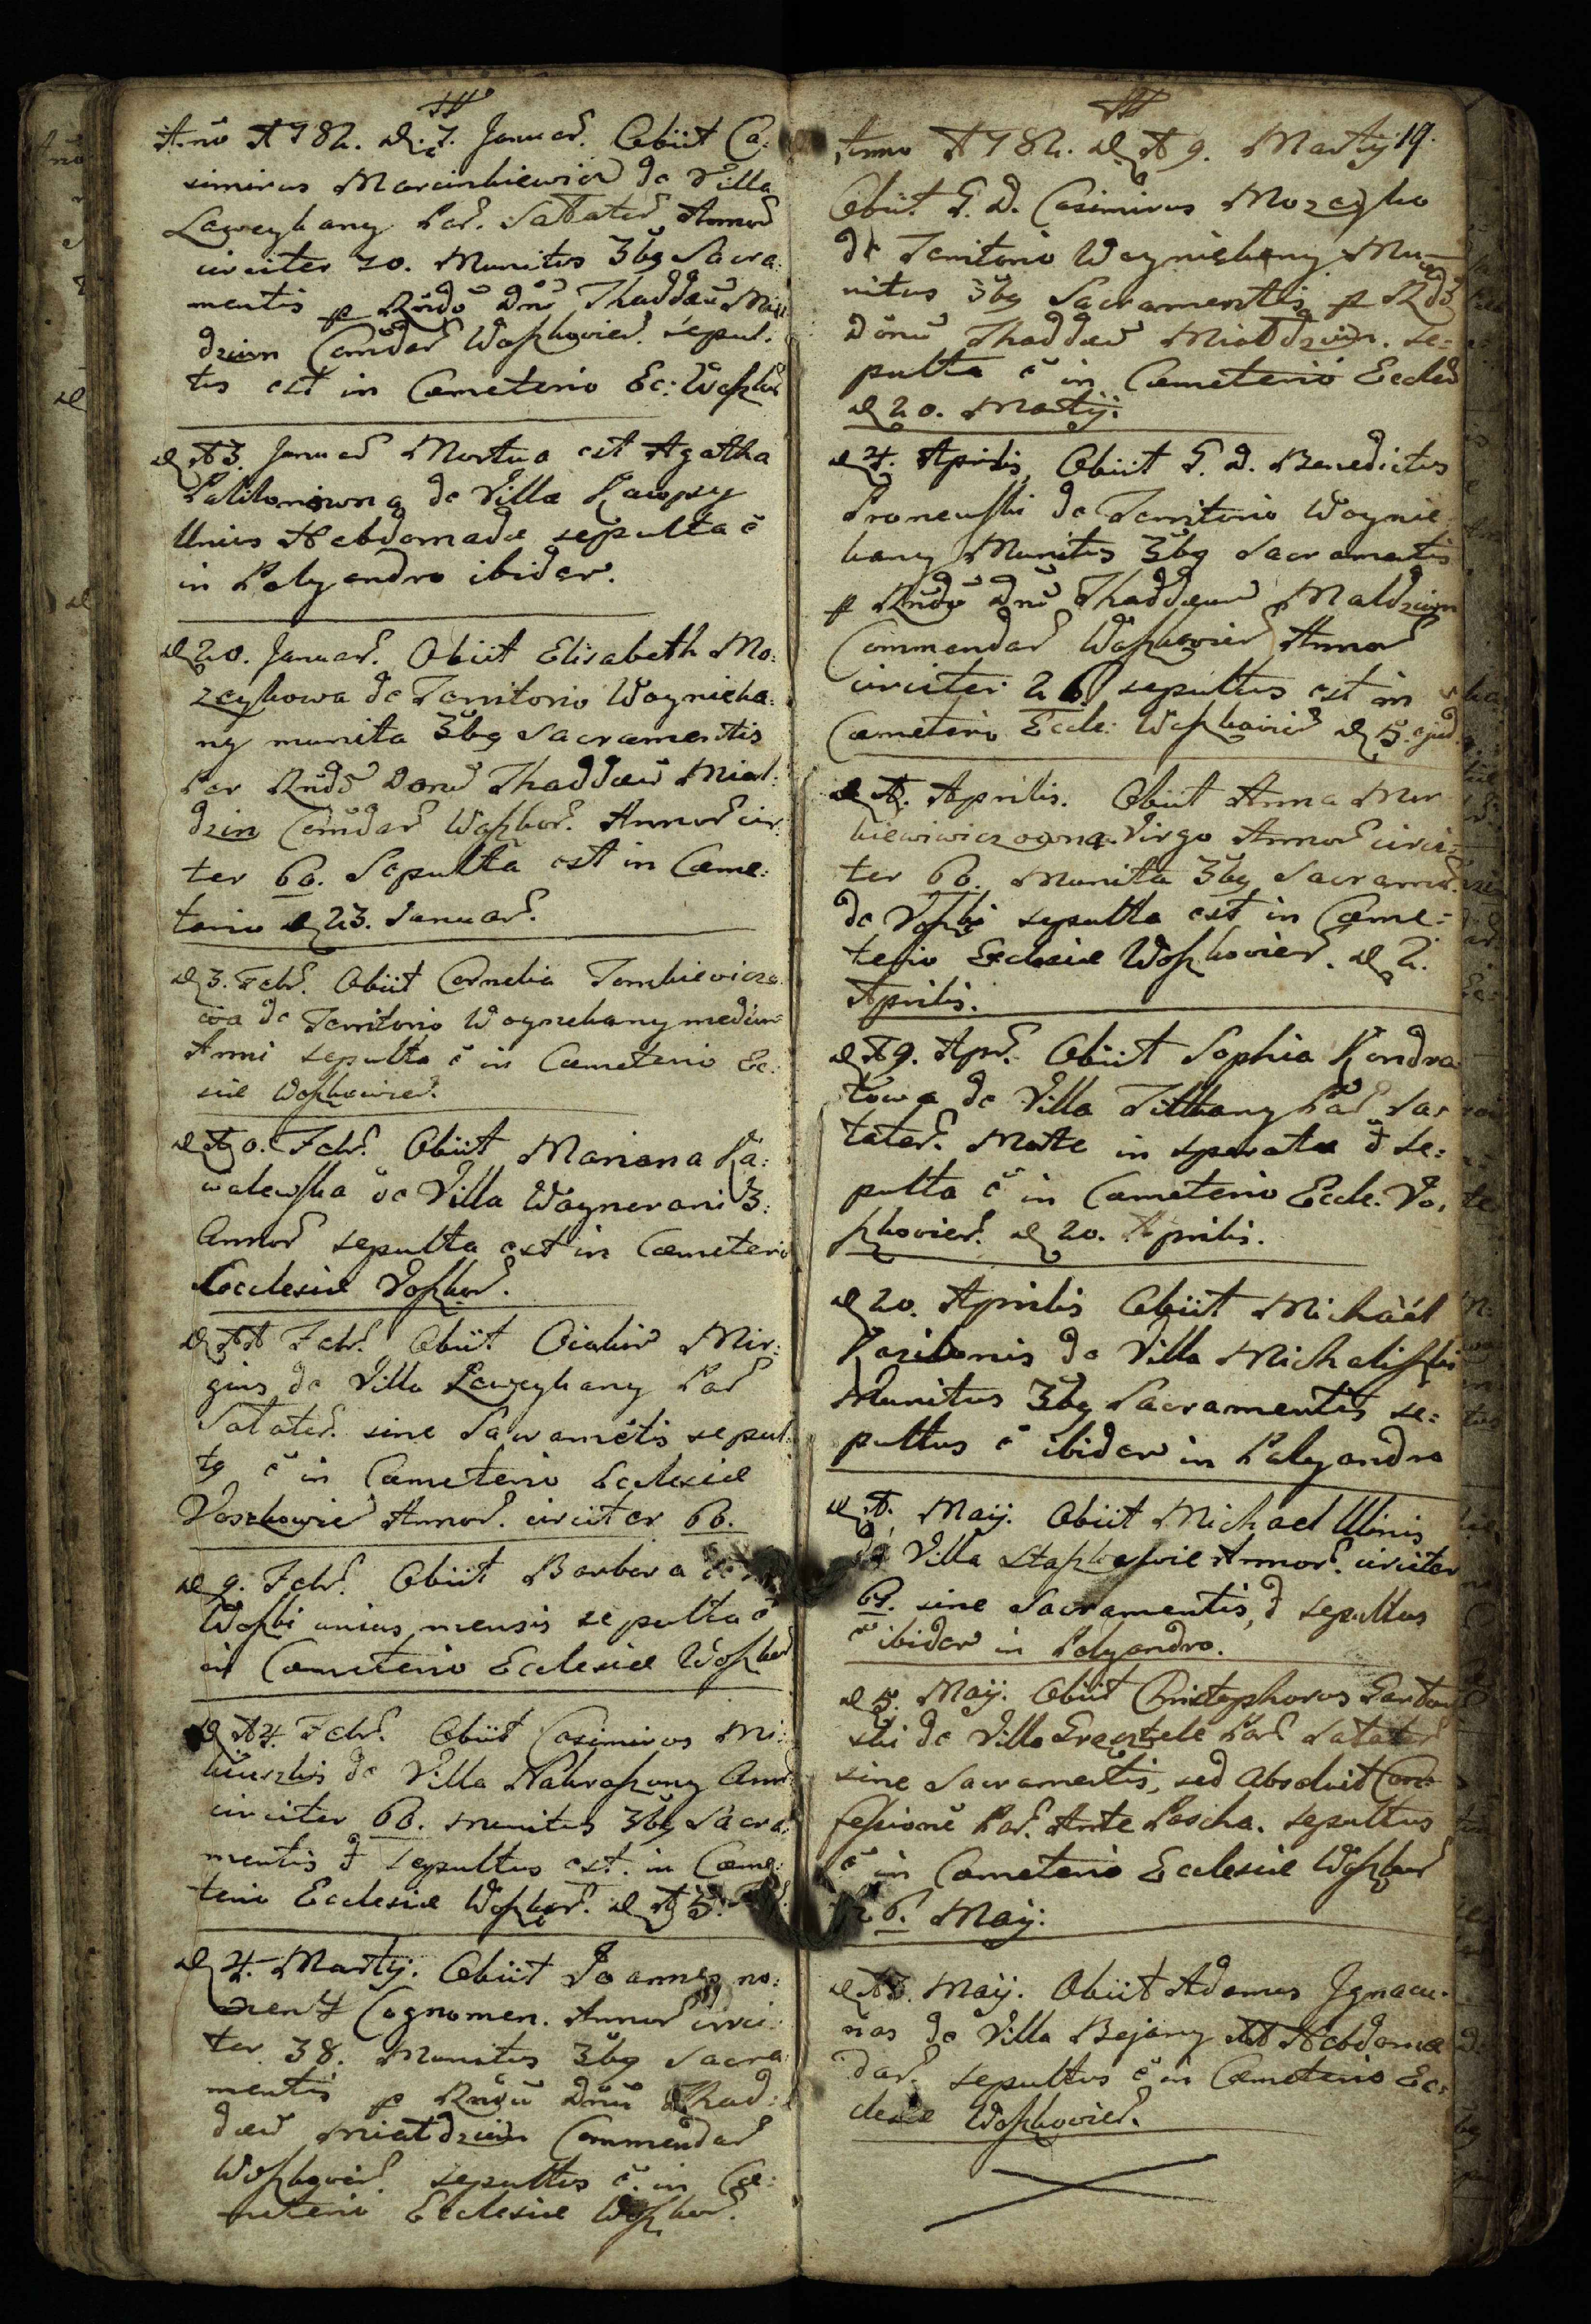 Año 1782. d. 7. Januar. Obiit Ca:
simirus Marcinkiewicz de Villa
Laweykany Par. Satater Annor
circiter 20. Munitus 3bq Sacra
mentis p Rndū Dnū Thaddæū Miał
dzun Comdar Woszkovien. sepul:
tus est in Cœmeterio Ec: Woszkov
d 13. Januar Mortua est Agatha
de Villa
Unius Hebdomadæ sepulta ē
in Polyandro ibidem.
d 20. Januar. Obiit Elisabeth Mo:
zeykowa de Territorio Woynieka:
ny munita 3bq Sacramentis
per Rndū Donū Thaddæū Miał:
dzun Comdar Woszkov. Annor cir
ter 60. Sepulta est in Cæme:
terio d 23. Januar.
d 3. Febr. Obiit Cornelia Tomkiewiczo
wa de Territorio Woynekany medium
Anni sepulta ē in Cæmeterio Ec:
siæ Woszkovien.
d 10. Febr. Obiit Mariana Ka:
walewska de Villa Woynerani 3:
Annor sepulta est in Cæmeterio
Ecclesiæ Voszkov.
d 11 Febr. Obiit Mir:
gius de Villa Laweykany Par
Satater. sine Sacrametis sepul:
tq ē in Cæmeterio Ecclesiæ
Voszkowie Annor. circiter 60.
d 9. Febr. Obiit Barbara
Woszki unius mensis sepulta ē
in Cæmeterio Ecclesiæ Woszkov
d 14. Febr. Obiit Casimirus Mi:
de Villa Annor
circiter 60. munitus 3bq Sacra:
mentis & sepultus est in Cæme:
terio Ecclesiæ Woszkov. d 15.
d 4. Martij. Obiit Joannes no:
Cognomen. Annor circi:
ter 38. Munitus 3bq Sacra
mentis p Rndū Dnū Thad:
dæū Miałdzun Commendar
Woszkovien. sepultus ē in Cæ:
meterio Ecclesiæ Woszkov.
Anno 1782. d 19. Martij 19.
Obiit G. D. Casimirus Mozeyko
de Territorio Woyniekany Mu=
nitus 3bq Sacramentis p Rdū
Donū Thaddæū Miałdzun. se=
pulta ē in Cæmeterio Eccles
d 20. Martij.
d 4. Aprilis Obiit G. D. Benedictus
Pronewski de Territorio Woynie
kany Munitus 3bq Sacramentis
p Rndū Dnū Thaddæum Małdzun
Commendar Woszkovien Annor
circiter 26 sepultus est in
Cæmeterio Eccle: Woszkovien d 5. ejusd.
d 1. Aprilis. Obiit Anna
Virgo Annor circi=
ter 60. Munita 3bq Sacramen.
de Voszki sepulta est in Cæme=
terio Ecclesiæ Woszkovien. d 2.
Aprilis.
d 19. Apr. Obiit Sophia Kondra
towa de Villa Tiltkany Par Sa:
tater. Morte in sperata & se:
pulta ē in Cæmeterio Eccle. Vo:
szkovien. d 20. Aprilis.
d 20. Aprilis Obiit Michaël
de Villa Michaliszki
Munitus 3bq Sacramentis se:
pultus ē ibidem in Polyandro
d 1. Maij. Obiit Michael Ulinis
de Villa Annor. circiter
61. sine Sacramentis, & sepultus
ē ibidem in Polyandro.
d 5. Maij. Obiit Christophorus
ski de Villa Par Satater
sine Sacramentis, sed Absoluit Con=
fessionē Par. Ante Pascha. sepultus
ē in Cæmeterio Ecclesiæ Woszkov
6. Maij.
d 16. Maij. Obiit Adamus Ignacu:
nas de Villa Bejany 11 Hebdoma
dar. sepultus ē in Cæmeterio Ec:
clesiæ Woszkovien.